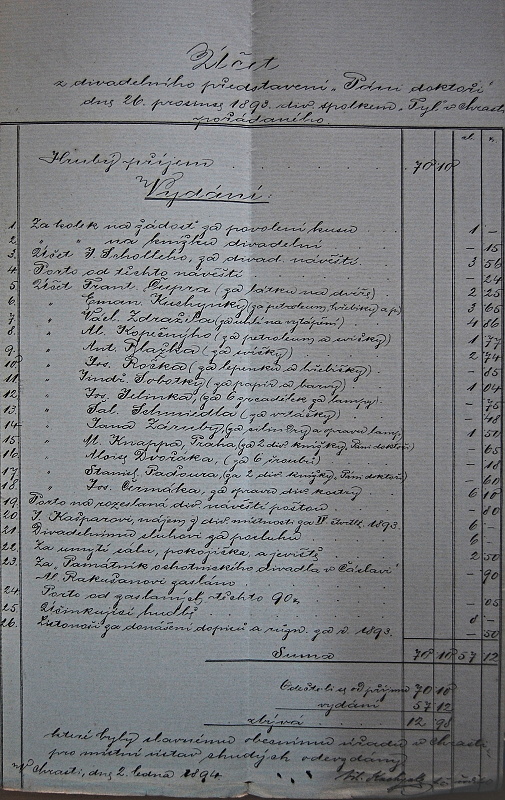 Účet
z divadelního představení „Páni doktoři“
dne 26. prosince 1893. div. spolkem „Tyl“ v Chrasti
pořádaného.
zl. k.
Hrubý příjem . . . 70 10
Vydání:
1. Za kolek na žádost za povolení kusu . . 1 –
2. „ „ na knížku divadelní . . – 15
3. Účet J. Scholleho, za divad. návěští . . 3 56
4. Porto od těchto návěští . . – 24
5. Účet Frant. Čupra (za látku na dvéře) . . 2 25
6. „ Eman. Kuchynky (za petroleum, hřebíky a p.) 3 65
7. „ Václ. Zdražila (za uhlí na vytápění) . . 4 86
8. „ Al. Kopečného (za petroleum a svíčky) 1 77
9. „ Ant. Blažka (za svíčky) . . 2 74
10. „ Jos. Roška (za lepenku a hřebíčky) . . – 85
11. „ Jindř. Sobotky (za papír a barvy) . . 1 04
12. „ Jos. Jelínka (za 6 lampy) . . – 75
13. „ Sal. Schmidla (za vrtáčky) . . – 48
14. „ Jana Záruby, (za a opravu lamp) 1 50
15. „ M. Knappa, Praha (za 2 div. knížky, Páni doktoři) – 65
16. „ Mořic Dvořáka, (za 6 šroubů) . . – 18
17. „ Stanisl. Padour, (za 2 div. knížky, Páni doktoři) – 60
18. „ Jos. Čermáka, za opravu div. 6 10
19. Porto na rozeslaná div. návěští poštou . . – 80
20. J. Kašparovi, nájem z div. místnosti za IV čtvrtl. 1893. 6 –
21. Divadelnímu sluhovi za posluhu . . 6 –
22. Za umytí sálu, pokojíčka, a jeviště . . 2 50
23. Za „Památník ochotnického divadla v Čáslavi“
M. Rakušanovi zasláno . . – 90
24. Porto od zaslaných těchto 90 k. . . – 05
25. Účinkující hudbě . . 8 –
26. Listonoši za donášení dopisů a r. 1893. – 50
Suma 70 10 57 12
Odečteli se od příjmu 70 10
vydání 57 12
zbývá 12 98
které byly slavnému obecnímu úřadu v Chrasti,
pro místní ústav chudých odevzdány
V Chrasti, dne 2. ledna 1894.